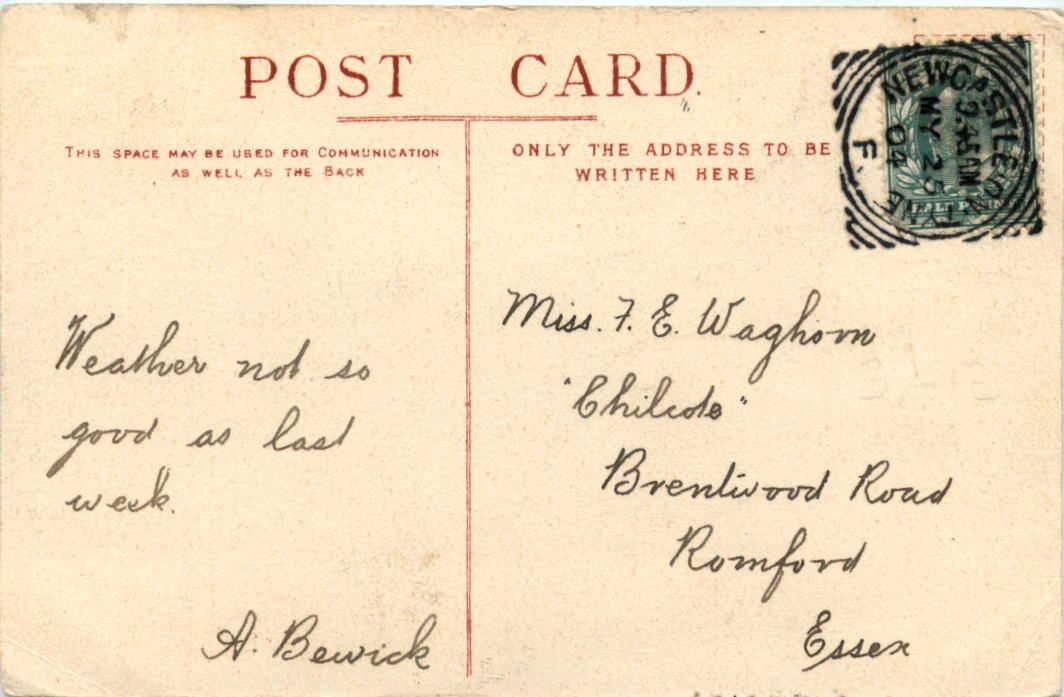 POST CARD.
THIS SPACE MAY BE USED FOR COMMUNICATION
AS WELL AS THE BACK
ONLY THE ADDRESS TO BE
WRITTEN HERE
NEWCASTLE-ON-TYNE
9.45AM
MY 25
04
F.
HALF PENNY
Weather not so
good as last
week.
A. Bewick
Miss. F. E. Waghorn
"Chilcote"
Brentwood Road
Romford
Essex